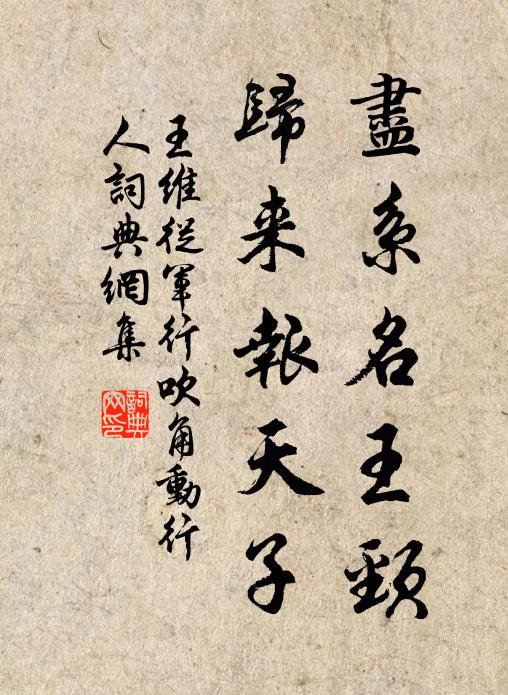 盡系名王頸
歸来報天子
王維從軍行吹角動行
人詞典網集
詞典網印